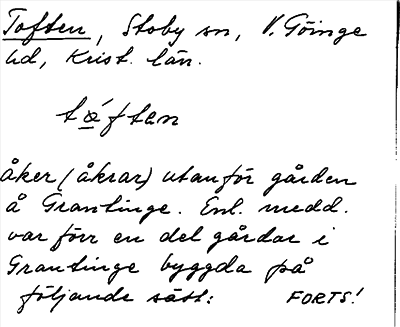 Toften, Stoby sn, V. Göinge
hd, Krist. län.
tá̲ften
åker (åkrar) utanför gården
å Grantinge. Enl. medd.
var förr en del gårdar i
Grantinge byggda på
följande sätt: FORTS!